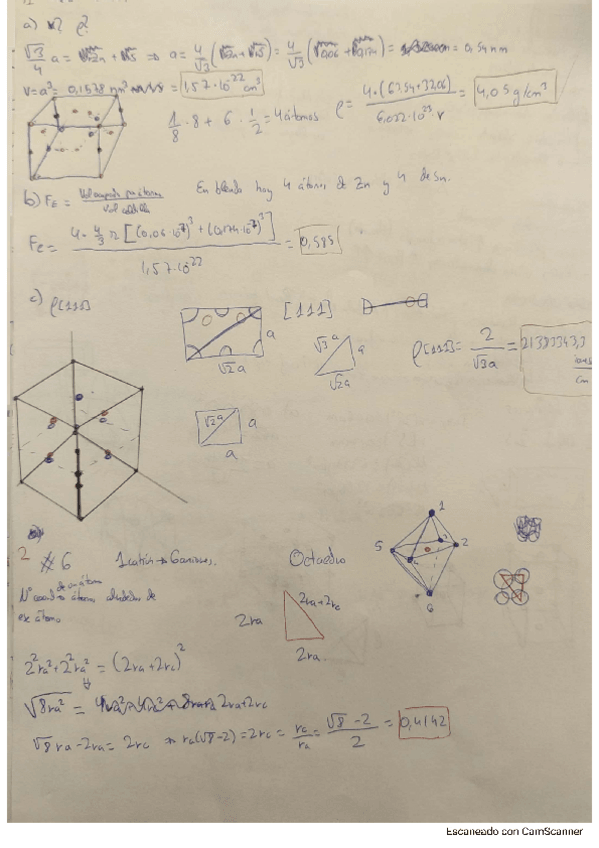 a) ρ?
√3/4 a = => a = 4/√3 ( ) = 4/√3 ( ) = 0,54 nm
V = a³ = 0,1578 nm³ = 1,57·10⁻²² cm³
1/8 · 8 + 6 · 1/2 = 4 átomos
ρ = 4·(65,4+32,06) / 6,022·10²³ · V = 4,05 g/cm³
b) FE = Vol ocupado por átomos / Vol celdilla
En blenda hay 4 átomos de Zn y 4 de Sn.
Fe = 4· 4/3 π [(0,06·10⁻⁷)³ + (0,174·10⁻⁷)³] / 1,57·10⁻²² = 0,585
c) ρ[111]
[111]
a
√2a
√3a
a
√2a
ρ[111] = 2/√3a = 21383343,3 cm
√2a
a
a
2 # 6
1 catión → 6 aniones.
Octaedro
1
5
2
6
Nº coord → átomos alrededor de
ese átomo
2ra
2ra+2rc
2ra
2²ra²+2²ra² = (2ra+2rc)²
√8ra² = 2ra+2rc
√8 ra - 2ra = 2rc → ra(√8-2) = 2rc = rc/ra = √8-2/2 = 0,4142
Escaneado con CamScanner